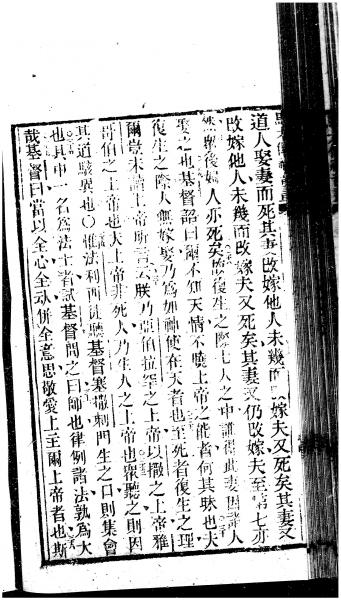 道人娶妻而死其妻改嫁他人未幾而改嫁夫又死矣其妻又
改嫁他人未幾而改嫁夫又死矣其妻又仍改嫁夫至第七亦
然與後婦人亦死矣故復生之際七人之中誰得此妻因諸人
娶之也基督語曰爾不知天情不曉上帝之能者何其昧也夫
復生之際人無嫁娶乃為如神使在天者也至死者復生之理
爾豈未讀上帝所言云朕乃亞伯拉罕之上帝以撒之上帝雅
哥伯之上帝也夫上帝非死人乃生人之上帝也眾聽之則因
其道駭異也〇惟法利西徒聽基督塞撒門生之口則集會
也其中一名為法士者試基督問之曰師也律例諸法孰為大
哉基督曰當以全心全動併全意思敬愛上主爾上帝者也斯